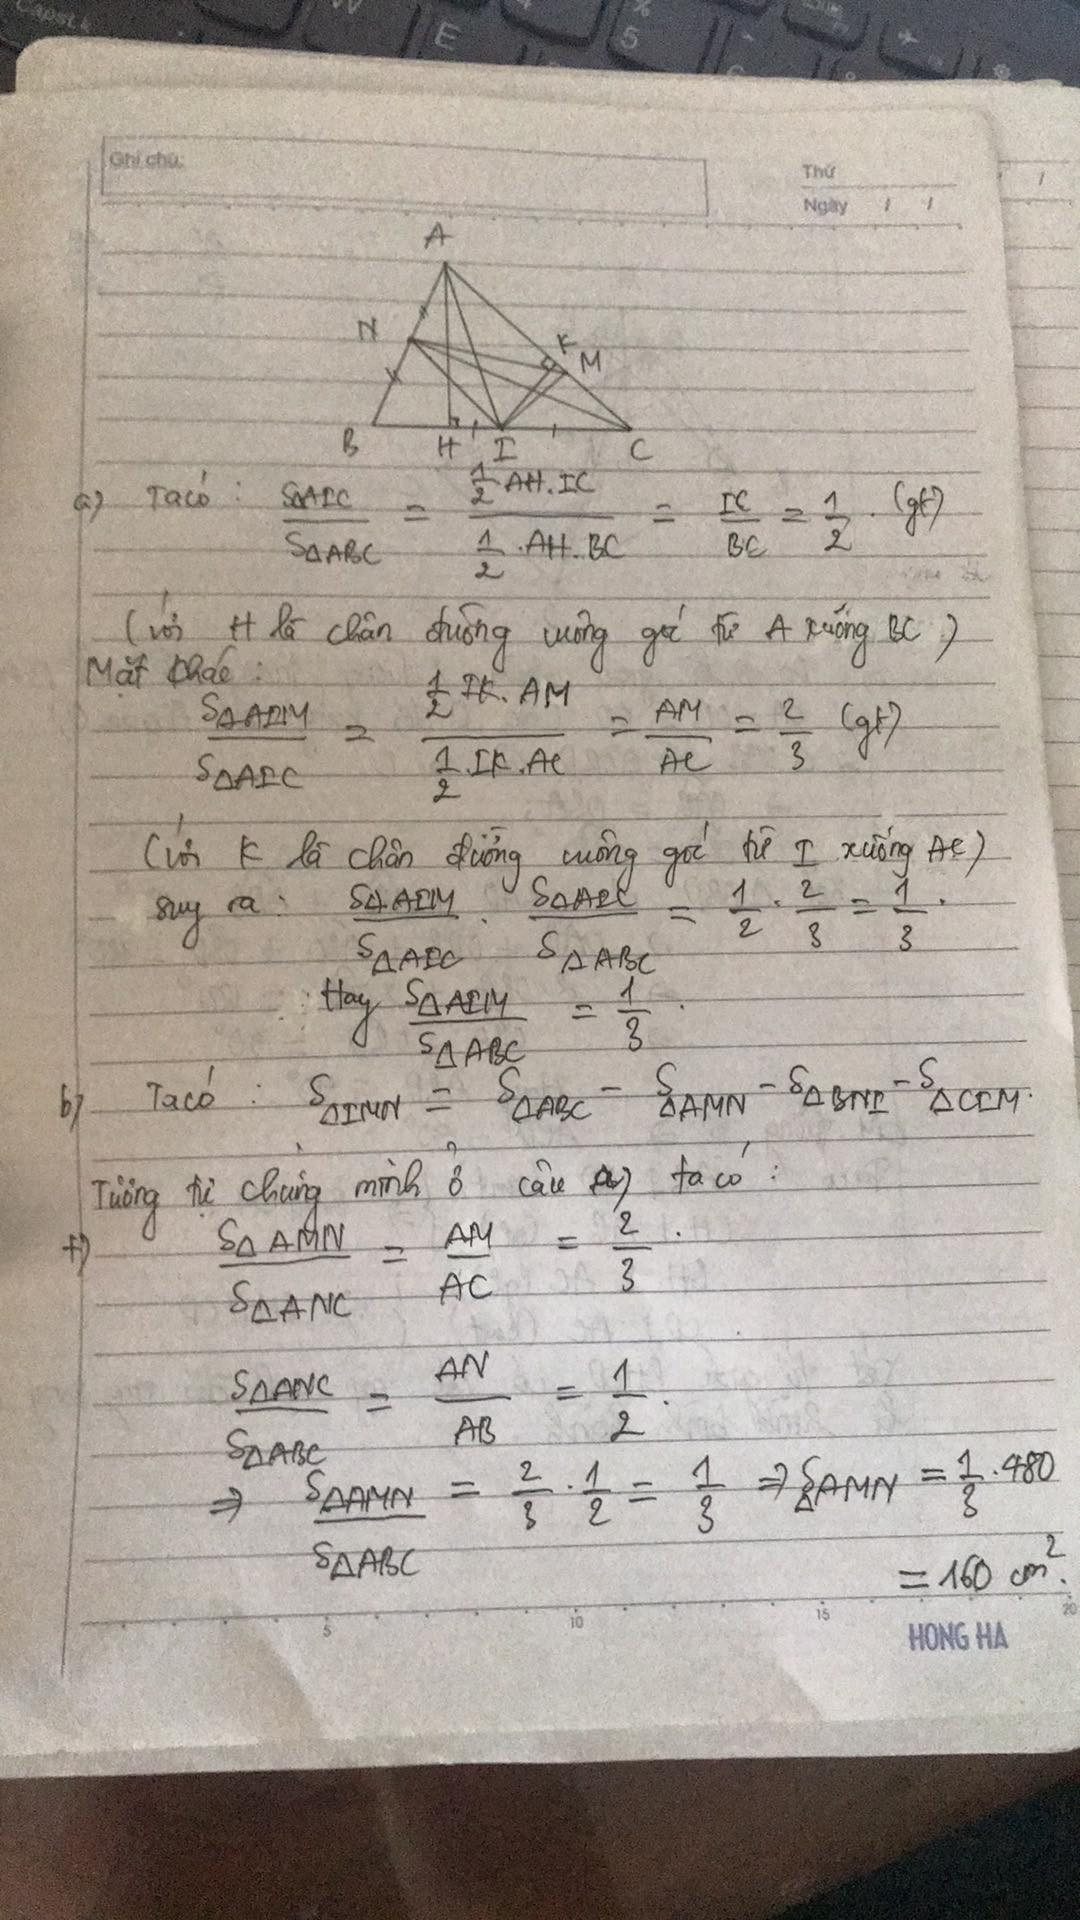 Ghi chú:
Thứ
Ngày / /
A
N
K
M
B H I C
a) Ta có : S△AIC / S△ABC = (1/2 AH.IC) / (1/2 .AH.BC) = IC/BC = 1/2 . (gt)
(với H là chân đường vuông góc từ A xuống BC)
Mặt khác :
S△AIM / S△AIC = (1/2 IK.AM) / (1/2 .IK.AC) = AM/AC = 2/3 (gt)
(với K là chân đường vuông góc từ I xuống AC)
suy ra : S△AIM / S△AIC . S△AIC / S△ABC = 1/2 . 2/3 = 1/3 .
Hay S△AIM / S△ABC = 1/3 .
b) Ta có : S△IMN = S△ABC - S△AMN - S△BNI - S△CIM.
Tương tự chứng minh ở câu a) ta có :
+) S△AMN / S△ANC = AM/AC = 2/3 .
S△ANC / S△ABC = AN/AB = 1/2 .
⇒ S△AMN / S△ABC = 2/3 . 1/2 = 1/3 ⇒ S△AMN = 1/3 . 480
= 160 cm².
5 10 15 20
HONG HA